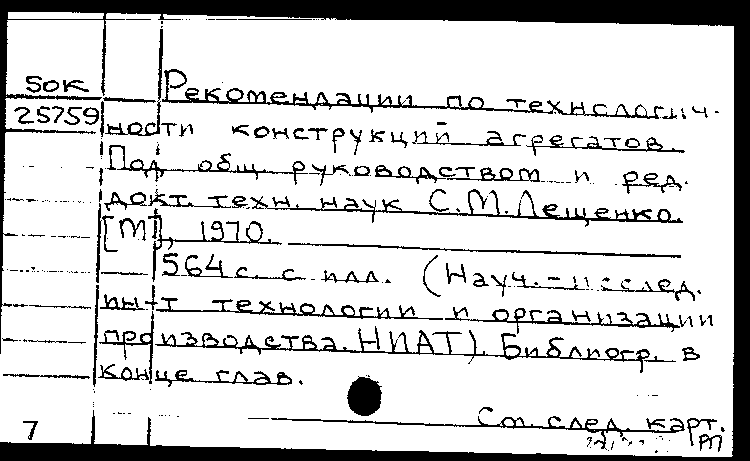 50к
25759
Рекомендации по технологич-
ности конструкций агрегатов.
Под общ. руководством и ред.
докт. техн. наук С.М. Лещенко.
[М], 1970.
564 с. с илл. (Науч.-исслед.
ин-т технологии и организации
производства. НИАТ). Библиогр. в
конце глав.
См. след. карт.
7
РП